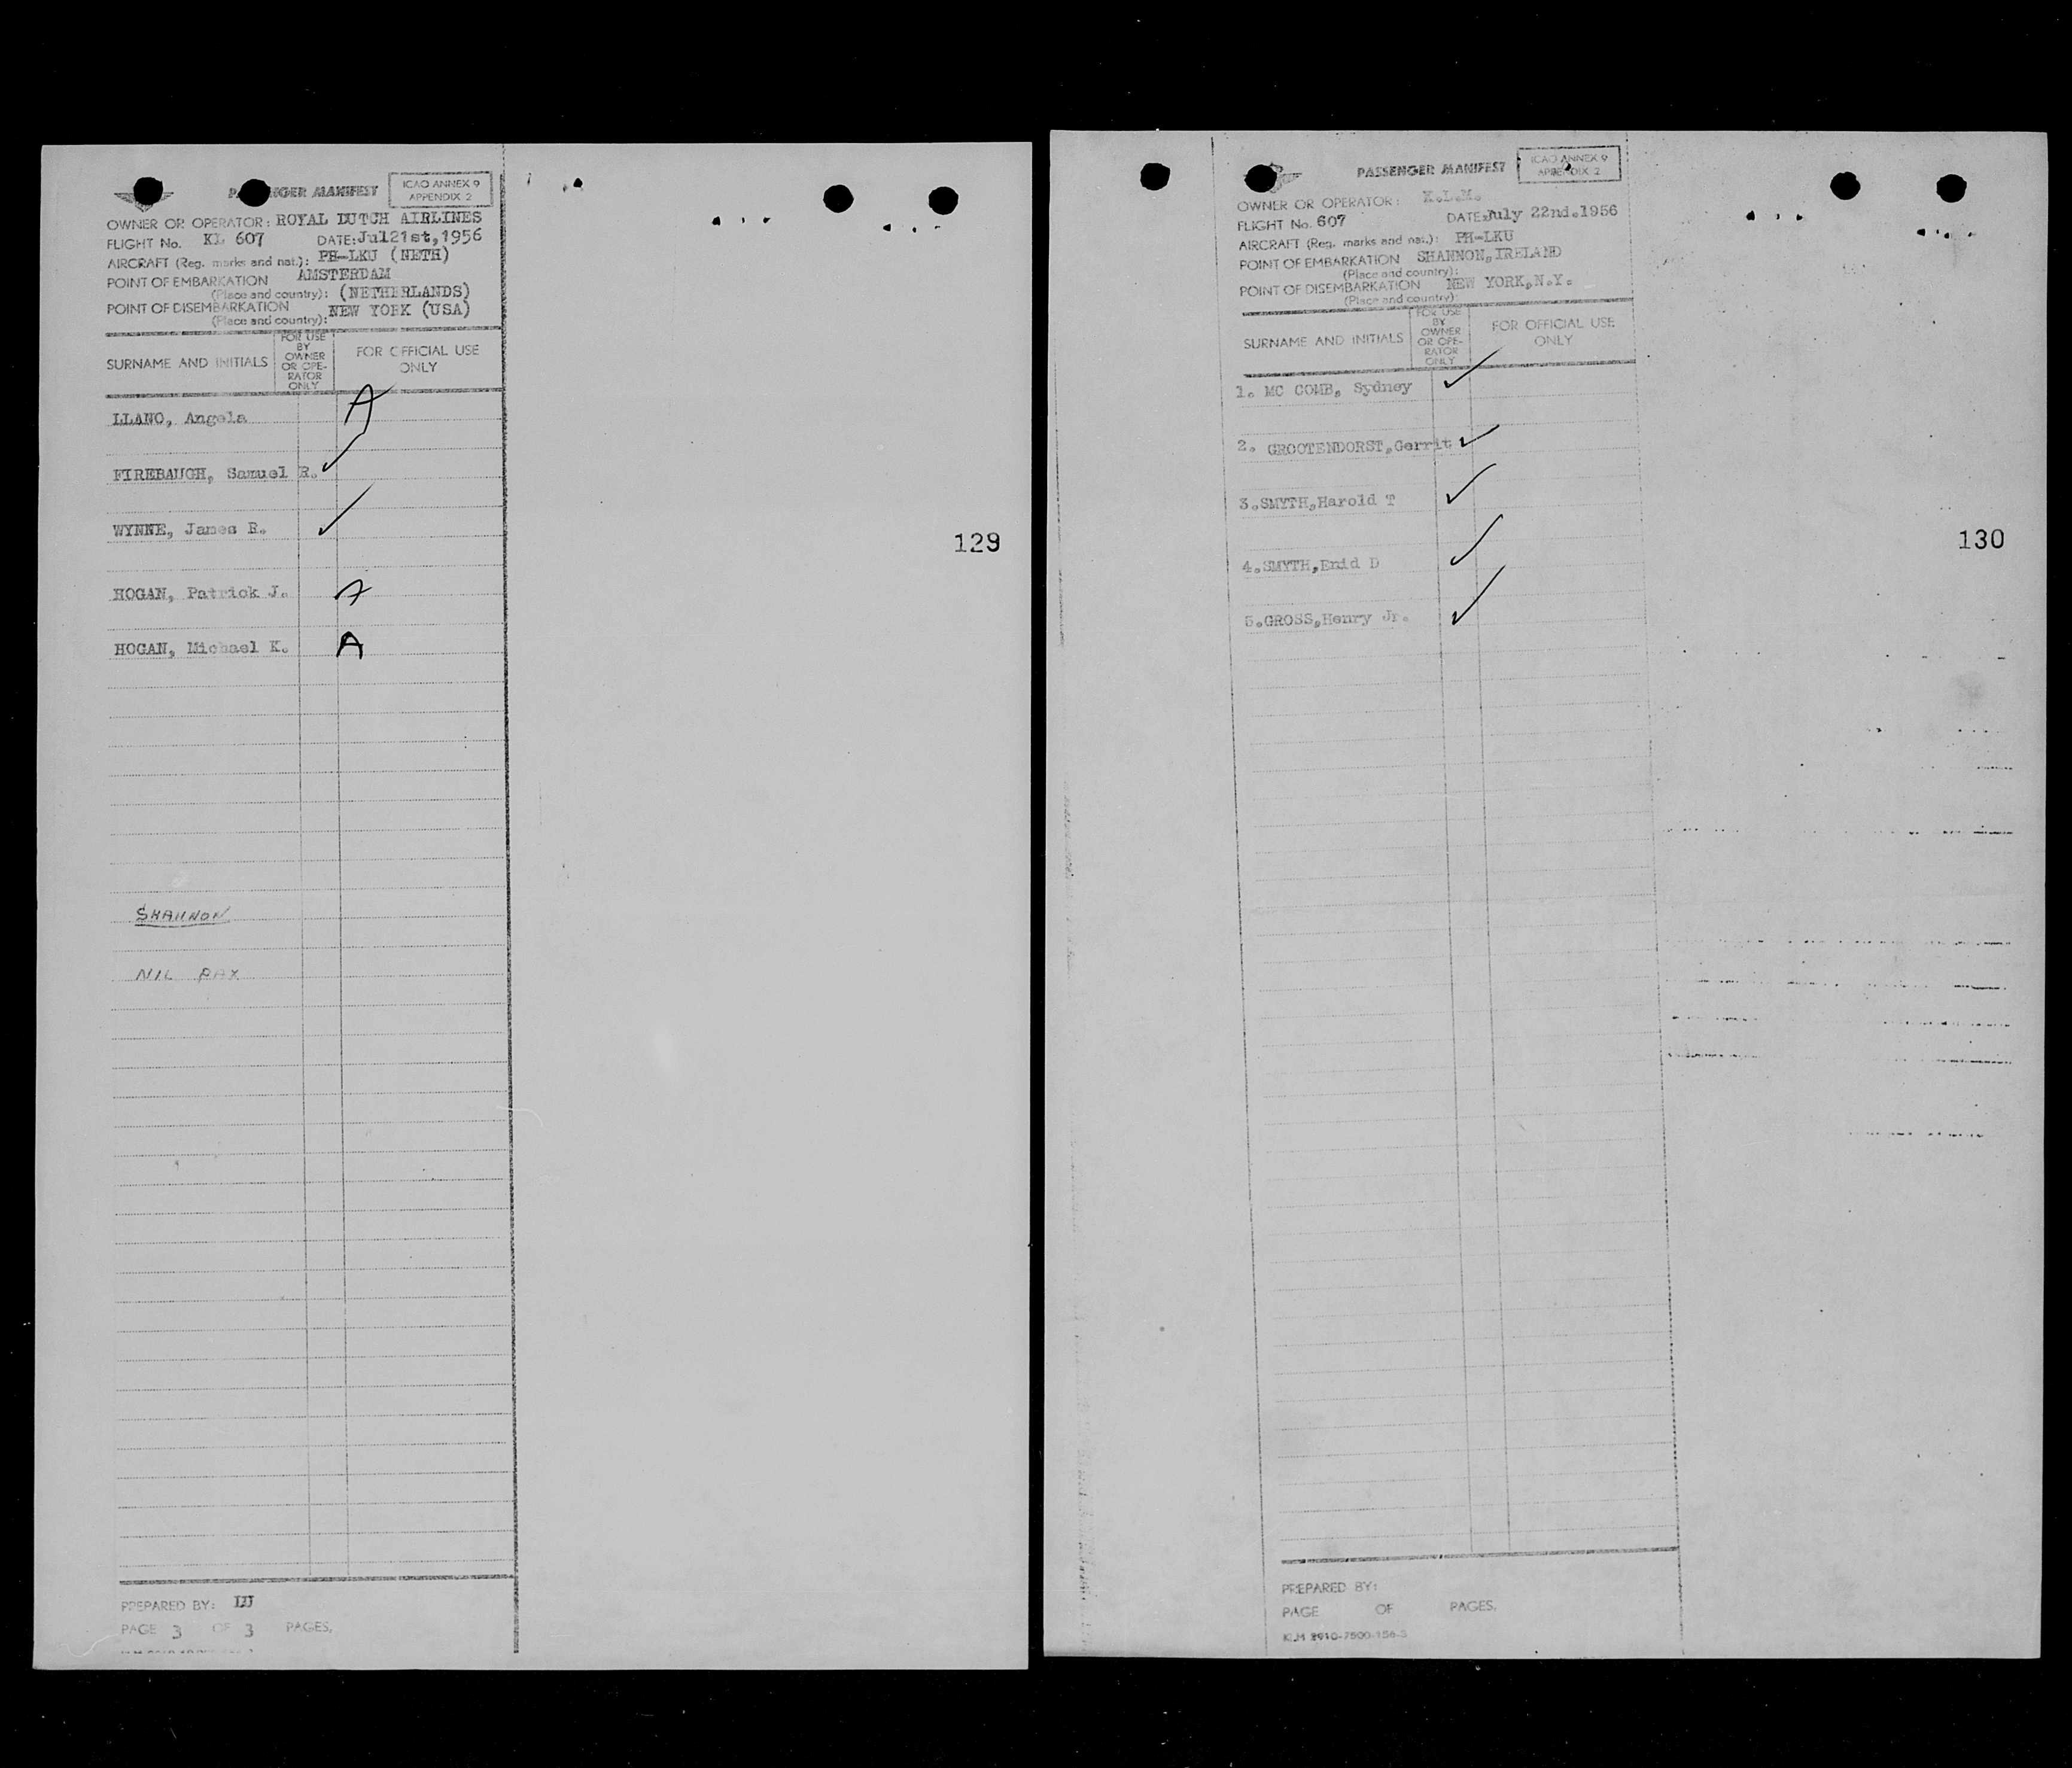 PASSENGER MANIFEST
ICAO ANNEX 9
APPENDIX 2
OWNER OR OPERATOR: ROYAL DUTCH AIRLINES
FLIGHT No. KL 607 DATE: Jul21st,1956
AIRCRAFT (Reg. marks and nat.): PH-LKU (NETH)
POINT OF EMBARKATION AMSTERDAM
(Place and country): (NETHERLANDS)
POINT OF DISEMBARKATION
(Place and country): NEW YORK (USA)
SURNAME AND INITIALS
FOR USE
BY
OWNER
OR OPE-
RATOR
ONLY
FOR OFFICIAL USE
ONLY
LLANO, Angela A
FIREBAUGH, Samuel R. ✓
WYNNE, James R. ✓
HOGAN, Patrick J. A
HOGAN, Michael K. A
SHANNON
NIL PAX
PREPARED BY:
PAGE 3 OF 3 PAGES.
129
PASSENGER MANIFEST
ICAO ANNEX 9
APPENDIX 2
OWNER OR OPERATOR: K.L.M.
FLIGHT No. 607 DATE: July 22nd.1956
AIRCRAFT (Reg. marks and nat.): PH-LKU
POINT OF EMBARKATION SHANNON, IRELAND
(Place and country):
POINT OF DISEMBARKATION NEW YORK, N.Y.
(Place and country):
SURNAME AND INITIALS
FOR USE
BY
OWNER
OR OPE-
RATOR
ONLY
FOR OFFICIAL USE
ONLY
1. MC COMB, Sydney ✓
2. GROOTENDORST,Gerrit ✓
3.SMYTH,Harold T ✓
4.SMYTH,Enid D ✓
5.GROSS,Henry Jr. ✓
PREPARED BY:
PAGE OF PAGES.
130